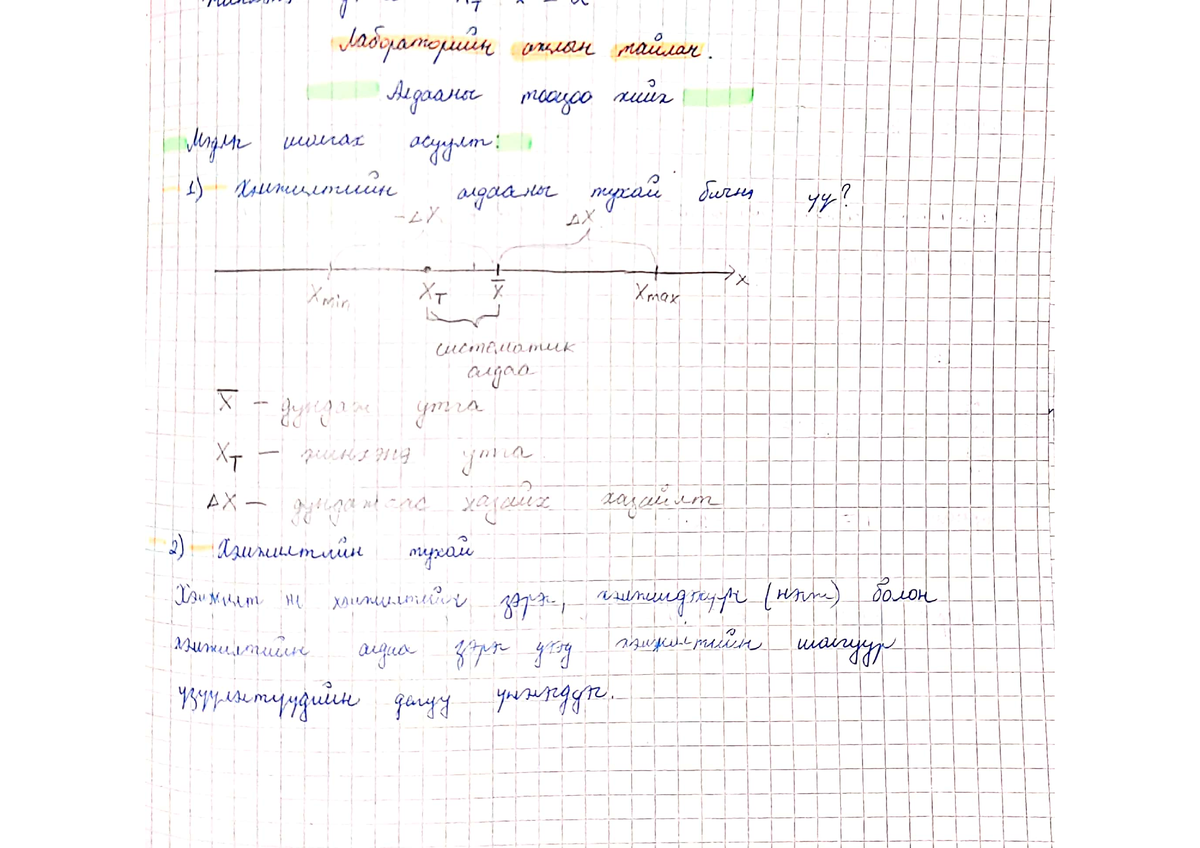 Лабораторийн ажлын тайлан.
Алдааны тооцоо хийх
Мэдлэг шалгах асуулт:
1) Хэмжилтийн алдааны тухай бичнэ үү?
-ΔX ΔX
Xmin X_T X̅ Xmax x
систематик
алдаа
X̅ — дундаж утга
X_T — жинхэнэ утга
ΔX — дунджаас хазайх хазайлт
2) Хэмжилтийн тухай
Хэмжилт нь хэмжилтийн зэрэг, хэмжигдэхүүн (нэгж) болон
хэмжилтийн алдаа зэрэг дээд хэмжилтийн шалгуур
үзүүлэлтүүдийн дагуу үнэлэгдэнэ.